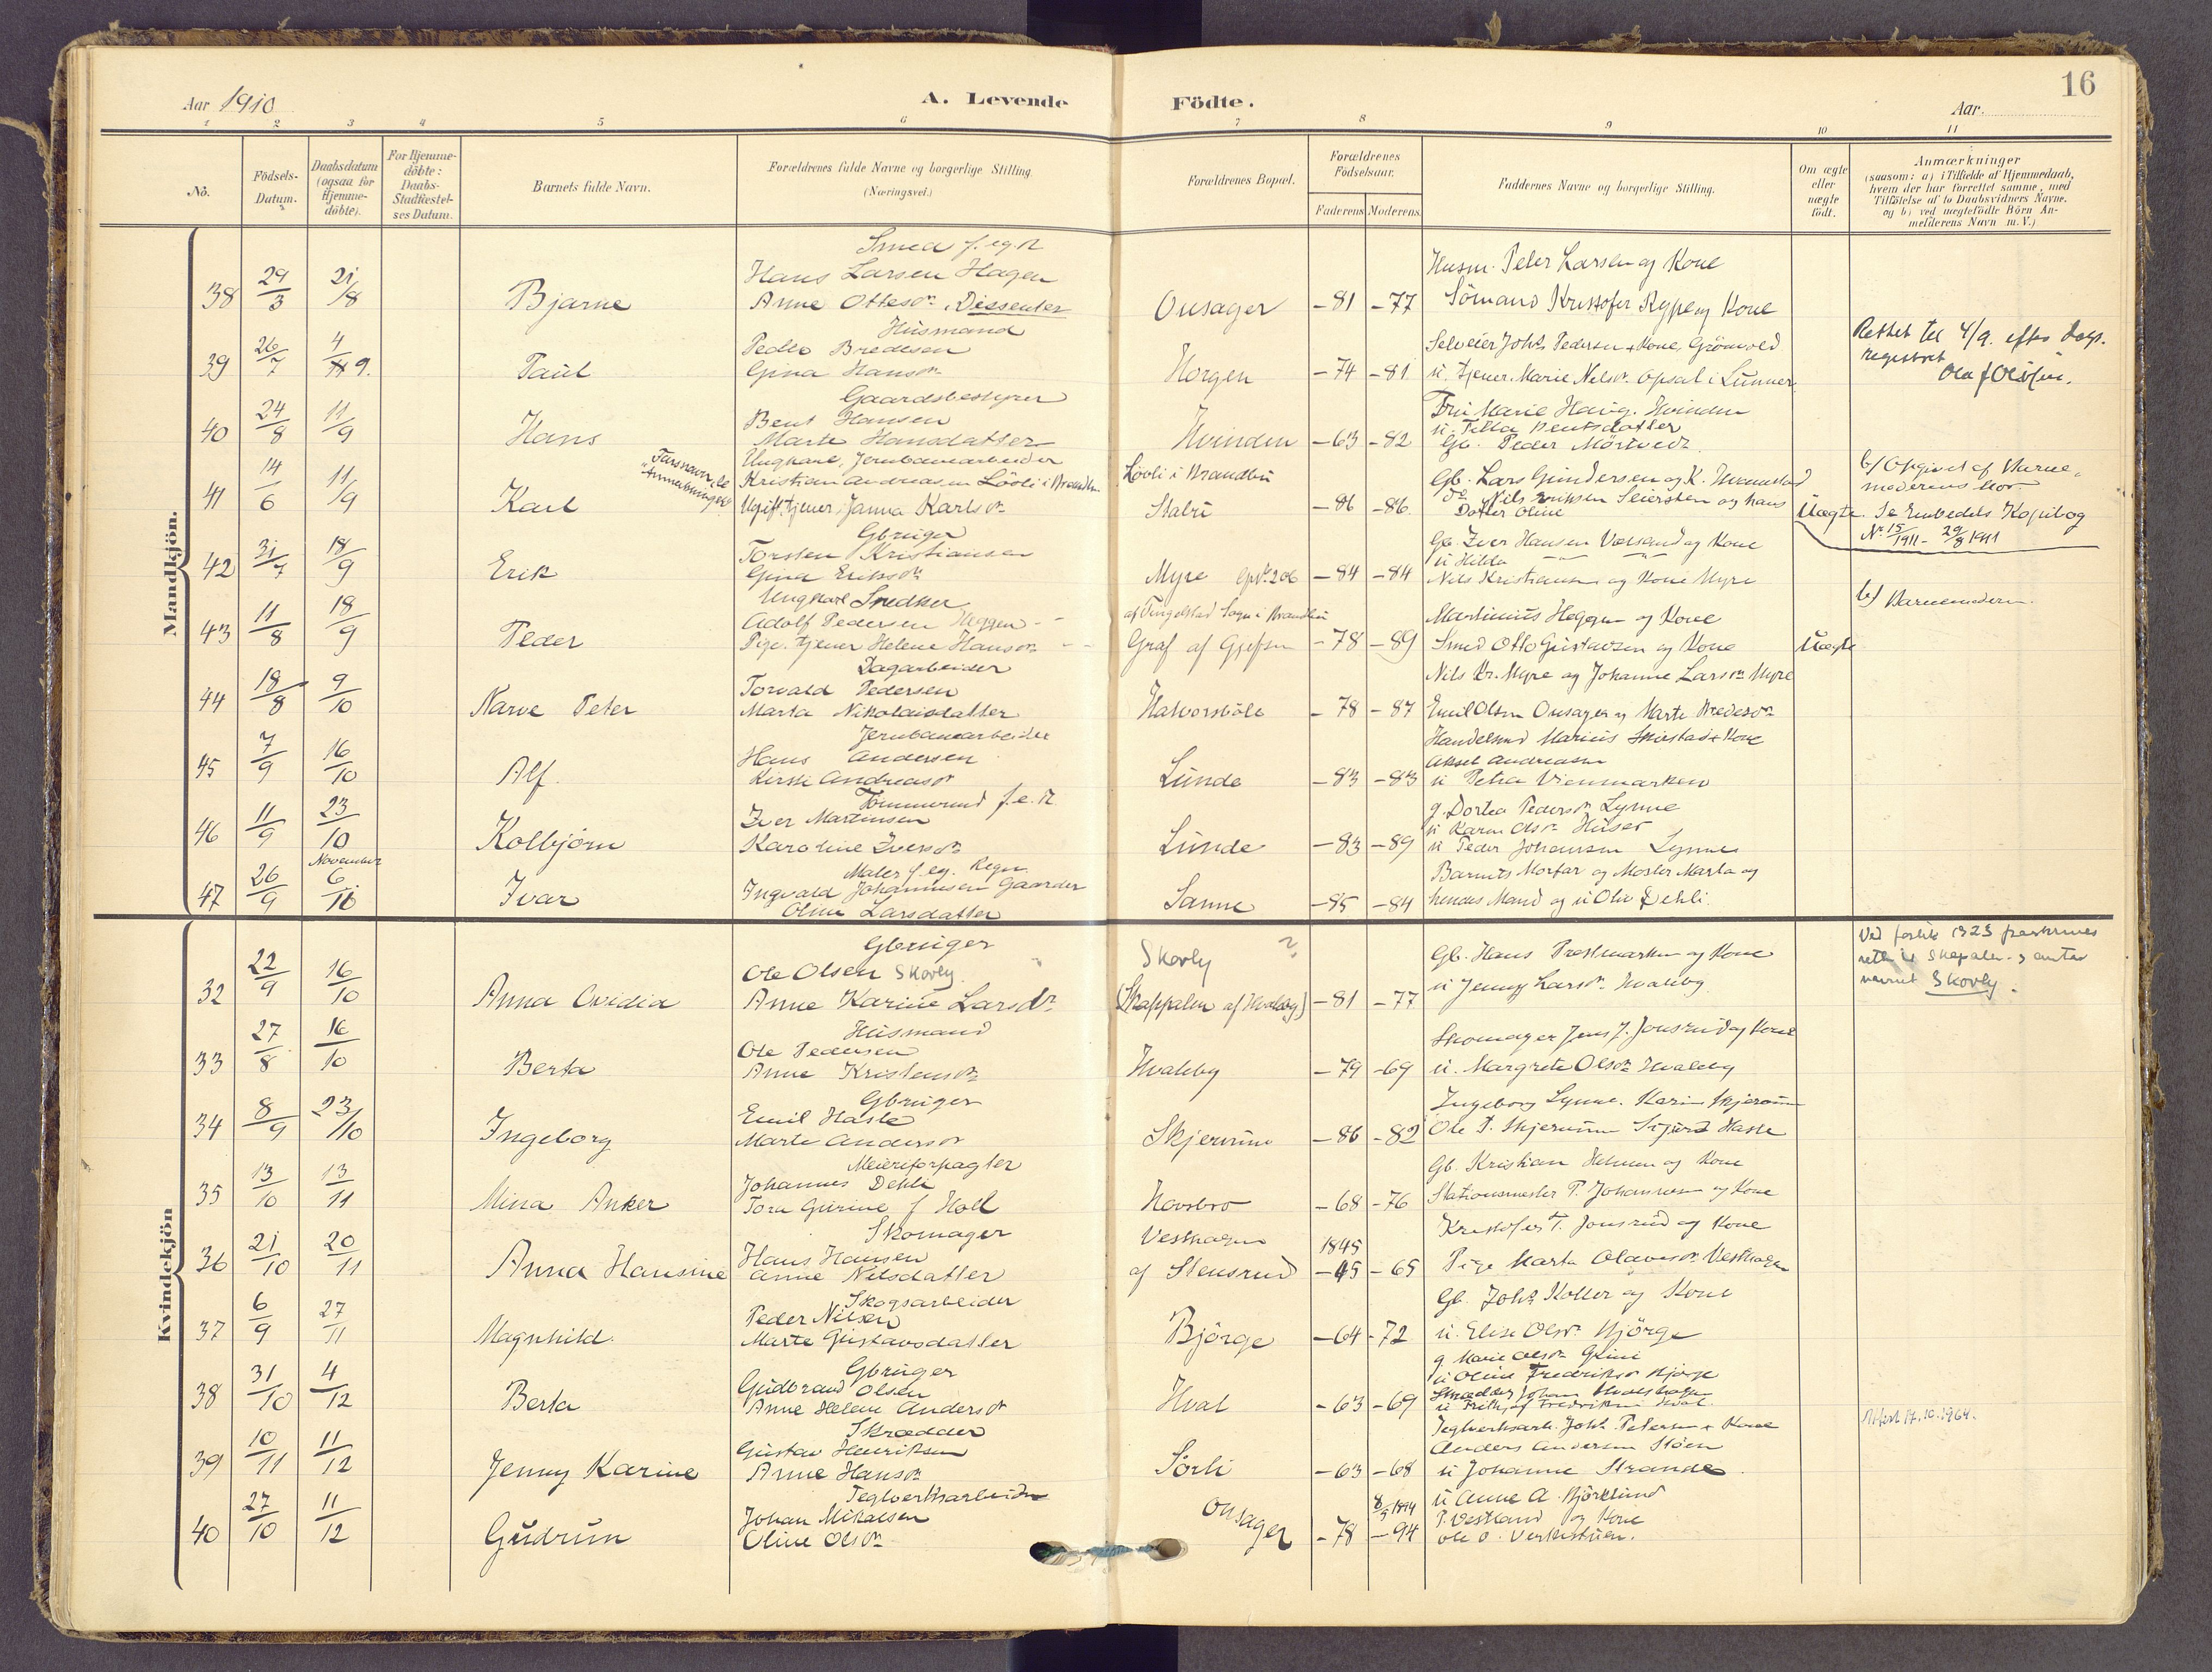 16
Aar 1910
A. Levende Födte.
Aar.
1 2 3 4 5 6 7 8 9 10 11
Nô.
Födsels-Datum.
Daabsdatum (ogsaa for Hjemme-döbte).
For Hjemme-döbte: Daabs-Stadfæstel-ses Datum.
Barnets fulde Navn.
Forældrenes fulde Navne og borgerlige Stilling. (Næringsvei.)
Forældrenes Bopæl.
Forældrenes Födselsaar.
Faderens Moderens
Faddernes Navne og borgerlige Stilling.
Om ægte eller uægte födt.
Anmærkninger (saasom: a) i Tilfælde af Hjemmedaab, hvem der har forrettet samme, med Tilföielse af to Daabsvidners Navne. og b) ved uægtefödte Börn An-melderens Navn m. V.)
Mandkjön.
Smed f. eg. R
Hans Larsen Hagen
38 29/3 21/8 Bjarne Anne Ottesdr. Dissenter Onsager -81 -77
Husm. Peter Larsen og Kone
Sömand Kristofer Rype og Kone
Husmand
Peder Bredesen
39 26/7 4/9. Paul Gina Hansdr. Horgen -74 -81
Selveier Johs Pedersen + Kone, Grönvold
u. tjener Marie Nilsdr. Opsal i Lunner
Rettet til 4/9. efter daps-
registret
Gaardsbestyrer
Bent Hansen
40 24/8 11/9 Hans Marte Hansdatter Hvinden -63 -82
Fru Marie Haug. Hvinden
u. Tilla Bentsdatter
Gb. Peder Mörtvedt
Ungkarl, Jernbanearbeider
Kristian Andreasen Lövli i Brandbu
Farsnavn, se
Anmerkningen
41 14/6 11/9 Karl Ugift tjener, Janna Karlsdr. Stabu -86 -86
Lövli i Brandbu
Gb. Lars Gundersen og K. Hvamstad
do Nils Eriksen Seiersten og hans
Datter Oline
Uægte
b/ Opgivet af Barne-
moderens Mor.
Se Embedets Kopibog
Nr 15/1911 - 29/8 1911
Gbruger
Torsten Kristiansen
42 31/7 18/9 Erik Gina Eriksdr. Myre -84 -84
Gb. Iver Hansen Velsand og Kone
u Hilda
Nils Kristiansen og Kone Myre
Ungkarl Snedker
Adolf Pedersen Heggen
43 11/8 18/9 Peder Pige. tjener Helene Hansdr. Graf af Gjefsen -78 -89
af Tingelstad Sogn i Brandbu
Martinius Heggen og Kone
Smed Otto Gustavsen og Kone
Uægte
b/ Barnemoderen.
Dagarbeider
Torvald Pedersen
44 18/8 9/10 Narve Peter Marta Nikolaisdatter Halvorsböle -78 -87
Nils Kr. Myre og Johanne Larsdr. Myre
Emil Olsen Onsager og Marte Bredesdr.
Jernbanearbeider
Hans Andersen
45 7/9 16/10 Alf. Kirsti Andreasdr. Lunde -83 -83
Aksel Andreasen
u Petra Vienmarken
Tömmermd f. e. R.
Iver Martinsen
46 11/9 23/10 Kolbjörn Karoline Iversdr. Lunde -83 -89
g. Dortea Pedersdr. Lynne
u Karen Olsdr. Huser
u Peder Johansen Lynne
Maler f. eg. Regn.
Ingvald Johannesen Gaarder
47 26/9 November 6/10 Ivar Oline Larsdatter Sanne -85 -84
Barnets Morfar og Moster Marta og
hendes Mand og u Olav Dehli.
Kvindekjön
Gbruger
Ole Olsen Skovly
32 22/9 16/10 Anna Ovidia Anne Karine Larsdr. (Skappalen af Hvaleby) -81 -77
Skovly ?
Gb. Hans Prestmarken og Kone
u Jenny Larsdr. Hvaleby
nevnt Skovly.
Husmand
Ole Pedersen
33 27/8 16/10 Berta Anne Kristensdr. Hvaleby -79 -69
Skomager Jens J. Jonsrud og Kone
u. Margrete Olsdr. Hvaleby
Gbruger
Emil Hasle
34 8/9 23/10 Ingeborg Marte Andersdr. Skjervum -86 -82
Ingeborg Lynne. Karin Skjervum
Ole P. Skjervum Sigurd Hasle
Meieriforpagter
Johannes Dehli
35 13/10 13/11 Mina Anker Tora Gurine f Holl Hovsbro -68 -76
Gb. Kristian Helmen og Kone
Stationsmester P. Johannesen og Kone
Skomager
Hans Hansen
36 21/10 20/11 Anna Hansine Anne Nilsdatter
Vesthagen
af Stensrud 1845 -45 -65
Kristofer T. Jonsrud og Kone
Pige Marta Olavesdr. Vesthagen
Skogsarbeider
Peder Nilsen
37 6/9 27/11 Magnhild. Marte Gustavsdatter Björge -64 -72
Gb. Johs Koller og Kone
u. Elise Olsdr. Björge
Gbruger
Gudbrand Olsen
38 31/10 4/12 Berta Anne Helene Andersdr. Hval -63 -69
g Marie Olsdr. Grini
u Oline Fredriksdr. Björge
u Fritjof Fredriksen Hval.
Skrædder
Gustav Henriksen
39 10/11 11/12 Jenny Karine Anne Hansdr. Sörli -63 -68
Teglverksarb. Johs. Petersen + Kone
Anders Andersen Stöen
u Johanne Strande.
Attest 17.10.1964.
Teglverksarbeider
Johan Mikalsen
40 27/10 11/12 Gudrun Oline Olsdr. Onsager -78 8/5 1894 -94
u Anne A. Björklund
P. Vestland og Kone
Ole O. Verkestuen.